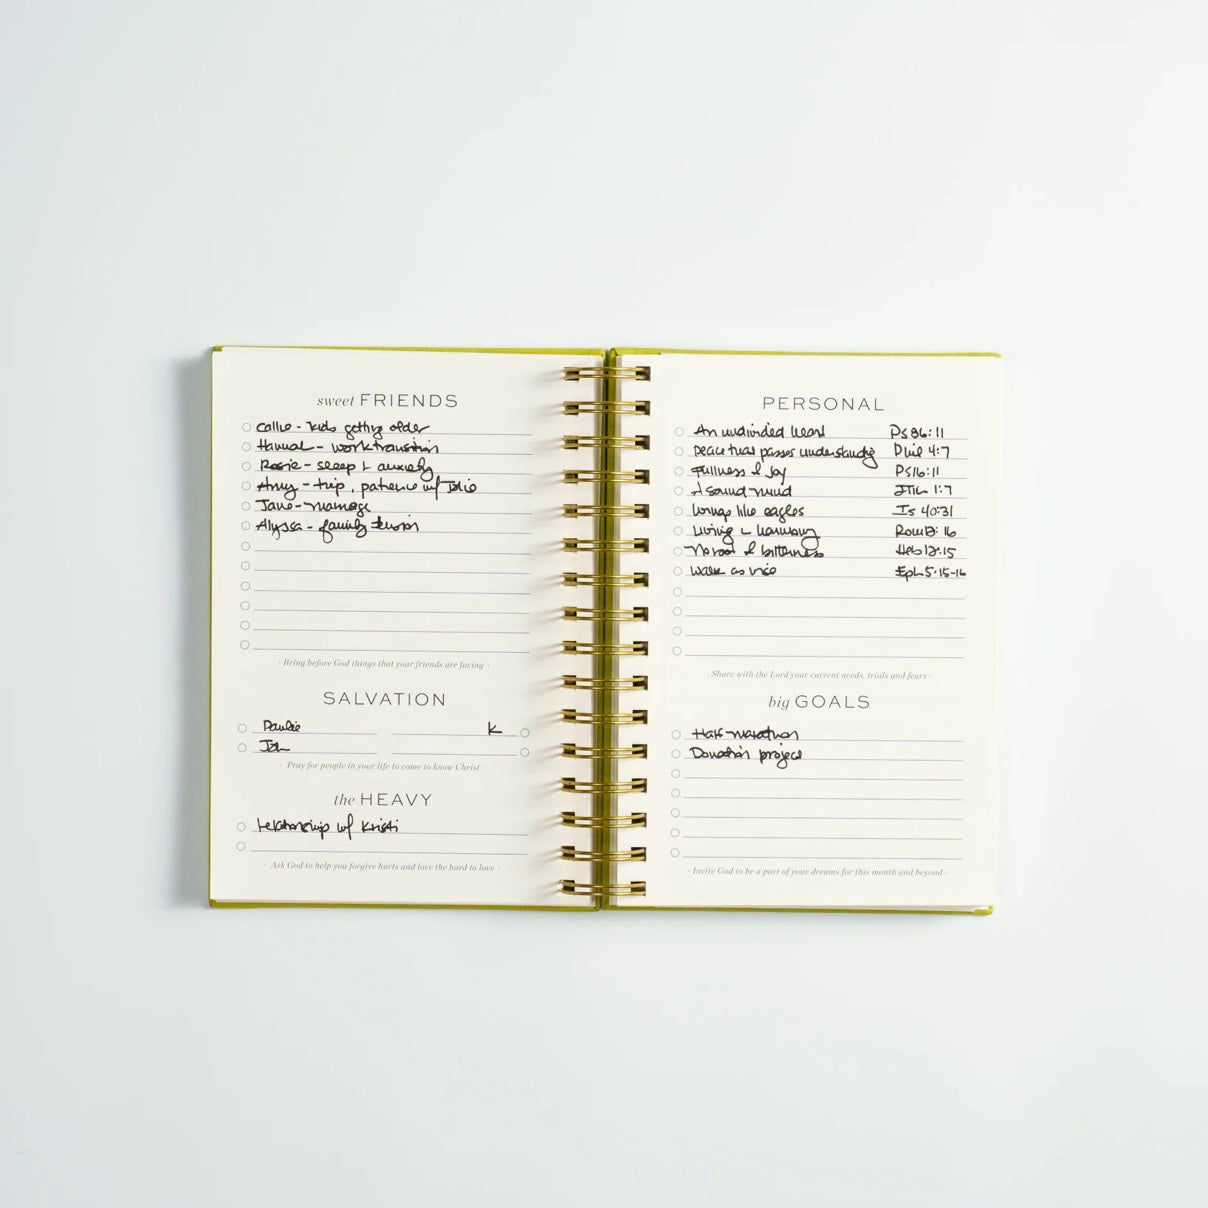 sweet FRIENDS
Callie - kids getting older
Hannah - work transition
Rosie - sleep + anxiety
Amy - trip, patience w/ Josie
Jane - marriage
Alyssa - family tension
· Bring before God things that your friends are facing ·
SALVATION
Paulie K
· Pray for people in your life to come to know Christ ·
the HEAVY
relationship w/ Kristi
· Ask God to help you forgive hurts and love the hard to love ·
PERSONAL
An undivided heart Ps 86:11
peace that passes understanding Phil 4:7
Fullness of joy Ps 16:11
A sound mind 2Tim 1:7
wings like eagles Is 40:31
Living in harmony Rom 12:16
No root of bitterness Heb 12:15
Walk as wise Eph 5:15-16
· Share with the Lord your current needs, trials and fears ·
big GOALS
Half-marathon
Donation project
· Invite God to be a part of your dreams for this month and beyond ·